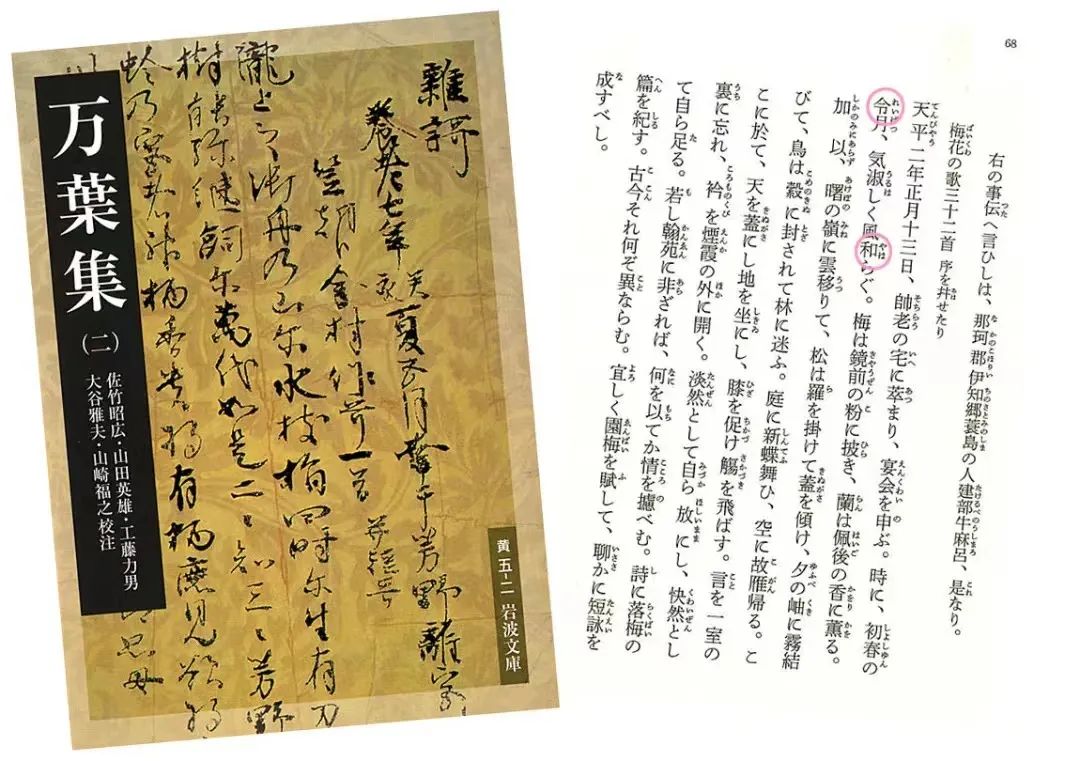 万葉集
(二)
佐竹昭広・山田英雄・工藤力男
大谷雅夫・山崎福之校注
黄 五-二
岩波文庫
雜謌
養老七年癸亥夏五月幸于芳野離宮
笠朝臣金村作哥一首 并短哥
瀧上之御舟乃山尓水枝指四時尓生有刀
68
右の事伝へ言ひしは、那珂郡伊知郷蓑島の人建部牛麻呂、是なり。
梅花の歌三十二首 序を幷せたり
天平二年正月十三日、帥老の宅に萃まり、宴会を申ぶ。時に、初春の
令月、気淑しく風和らぐ。梅は鏡前の粉に披き、蘭は佩後の香に薫る。
加以、曙の嶺に雲移りて、松は羅を掛けて蓋を傾け、夕の岫に霧結
びて、鳥は縠に封されて林に迷ふ。庭に新蝶舞ひ、空に故雁帰る。こ
こに於て、天を蓋にし地を坐にし、膝を促け觴を飛ばす。言を一室の
裏に忘れ、衿を煙霞の外に開く。淡然として自ら放にし、快然とし
て自ら足る。若し翰苑に非ざれば、何を以てか情を攄べむ。詩に落梅の
篇を紀す。古今それ何ぞ異ならむ。宜しく園梅を賦して、聊かに短詠を
成すべし。